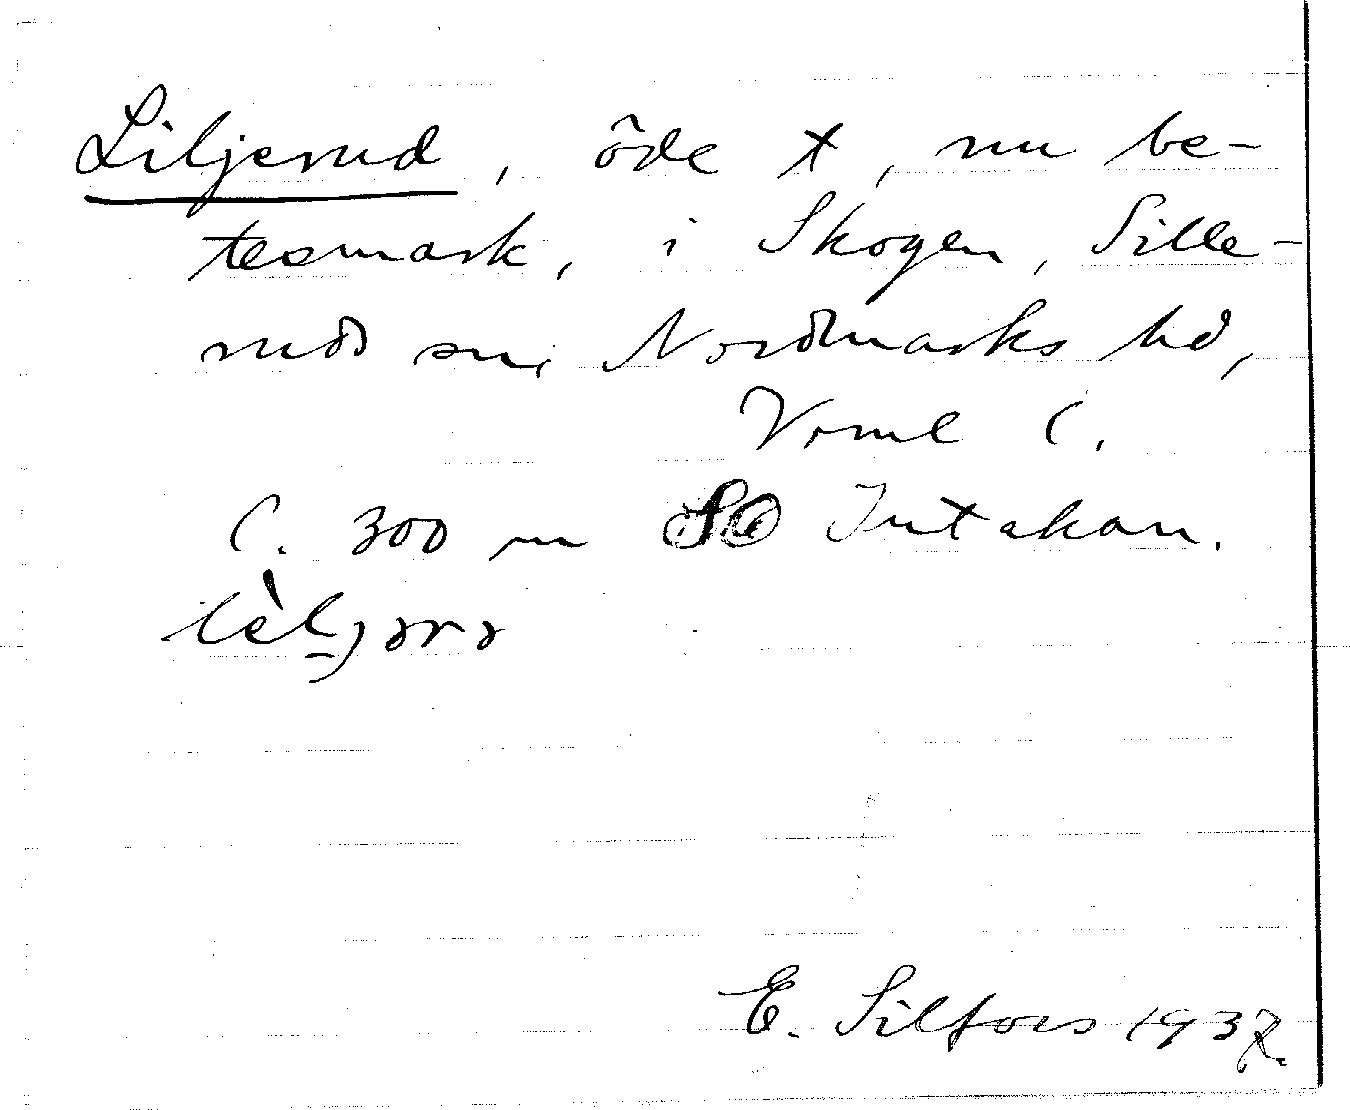 Liljerud, öde t, nu be-
tesmark, i Skogen, Sille-
ruds sn, Nordmarks hd,
Vrml l.
C. 300 m SO Intakan.
E. Silfors 1937.